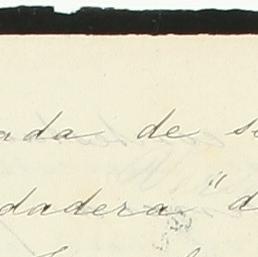 ada de s
dadera " d